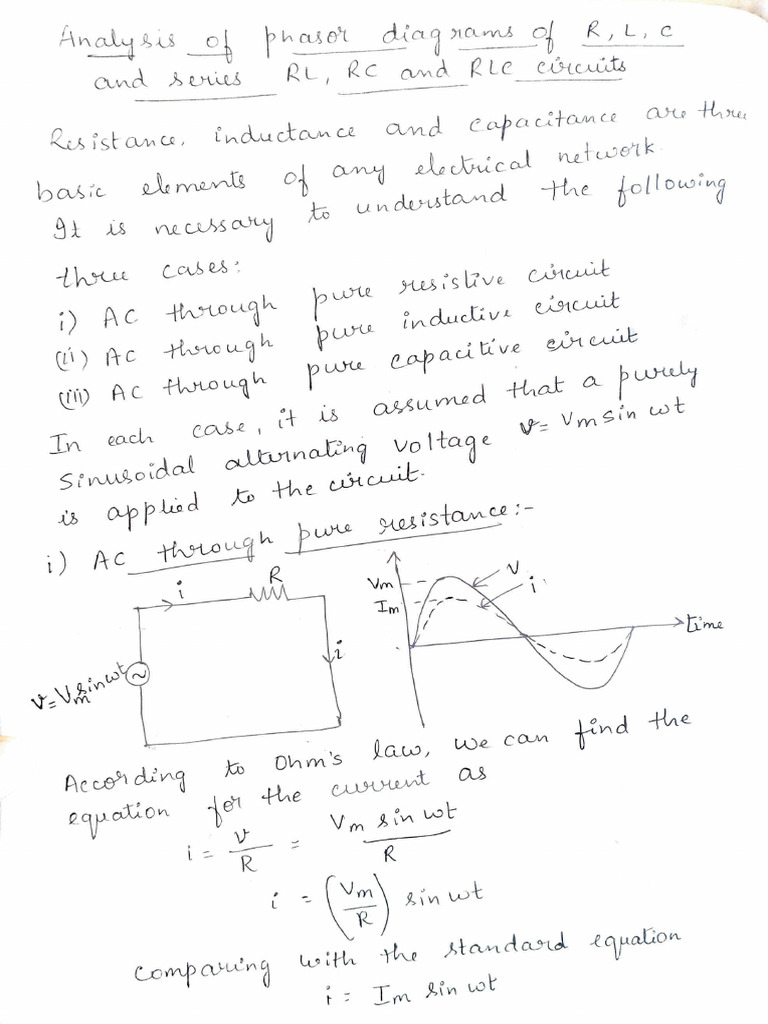 Analysis of phasor diagrams of R, L, C
and series RL, RC and RLC circuits
Resistance, inductance and capacitance are three
basic elements of any electrical network.
It is necessary to understand the following
three cases:
i) AC through pure resistive circuit
(ii) AC through pure inductive circuit
(iii) AC through pure capacitive circuit
In each case, it is assumed that a purely
Sinusoidal alternating voltage v = Vm sin ωt
is applied to the circuit.
i) AC through pure resistance:-
i
R
i
v = Vm sin ωt
~
Vm
Im
v
i
time
According to Ohm's law, we can find the
equation for the current as
i = v/R = Vm sin ωt/R
i = (Vm/R) sin ωt
Comparing with the standard equation
i = Im sin ωt